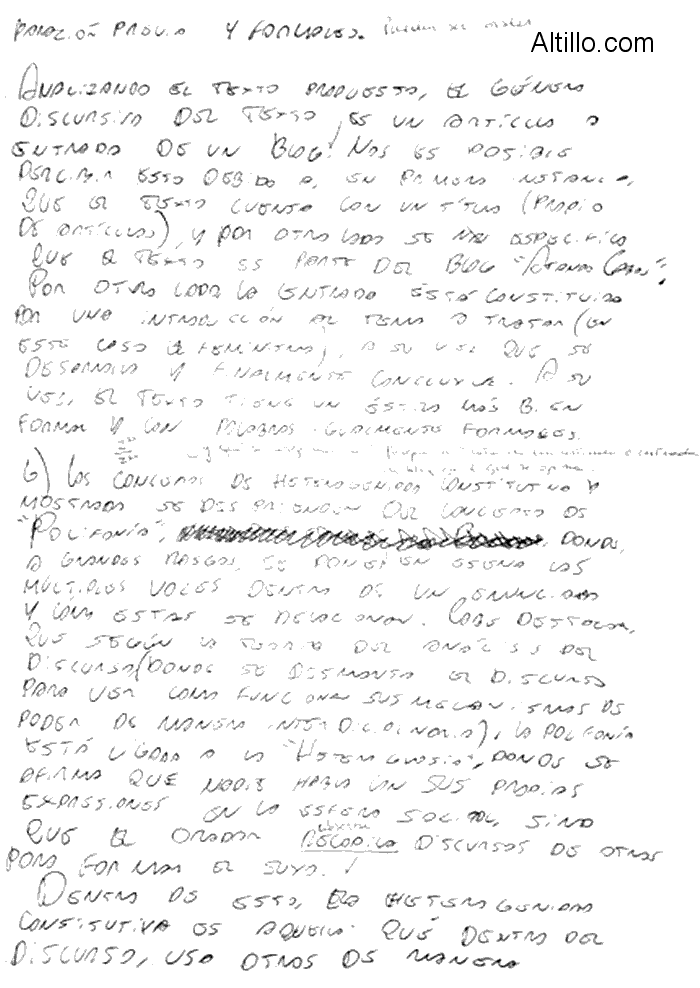 Y FORMALES. Pueden ser orales
Altillo.com
ANALIZANDO EL TEXTO PROPUESTO, EL GÉNERO
DISCURSIVO DEL TEXTO ES UN ARTÍCULO O
ENTRADA DE UN BLOG. NOS ES POSIBLE
ESTO DEBIDO A, EN PRIMERA INSTANCIA,
QUE EL TEXTO CUENTA CON UN TÍTULO (PROPIO
DE ARTÍCULOS), Y POR OTRO LADO SE NOS ESPECIFICA
QUE EL TEXTO ES PARTE DEL BLOG
POR OTRO LADO LA ENTRADA ESTÁ CONSTITUIDA
POR UNA INTRODUCCIÓN AL TEMA A TRATAR (EN
ESTE CASO EL FEMINISMO), A SU VEZ QUE SE
DESARROLLA Y FINALMENTE CONCLUYE. A SU
VEZ, EL TEXTO TIENE UN ESTILO MÁS BIEN
FORMAL Y CON PALABRAS IGUALMENTE FORMALES.
6) LOS CONCEPTOS DE HETEROGENEIDAD CONSTITUTIVA Y
MOSTRADA SE DESPRENDEN DEL CONCEPTO DE
"POLIFONÍA", DONDE,
A GRANDES RASGOS, SE PONE EN ESCENA LAS
MÚLTIPLES VOCES DENTRO DE UN ENUNCIADO
Y CÓMO ESTAS SE RELACIONAN. CABE DESTACAR,
QUE SEGÚN LA TEORÍA DEL ANÁLISIS DEL
DISCURSO (DONDE SE DESMONTA EL DISCURSO
PARA VER COMO FUNCIONAN SUS MECANISMOS DE
PODER DE MANERA INTERDISCIPLINARIA), LA POLIFONÍA
ESTÁ LIGADA A LA "HETEROGLOSIA", DONDE SE
AFIRMA QUE NADIE HABLA CON SUS PROPIAS
EXPRESIONES EN LA ESFERA SOCIAL, SINO
QUE EL ORADOR RECOPILA DISCURSOS DE OTROS
PARA FORMAR EL SUYO.
DENTRO DE ESTO, LA HETEROGENEIDAD
CONSTITUTIVA ES AQUELLA QUE DENTRO DEL
DISCURSO, USA OTROS DE MANERA